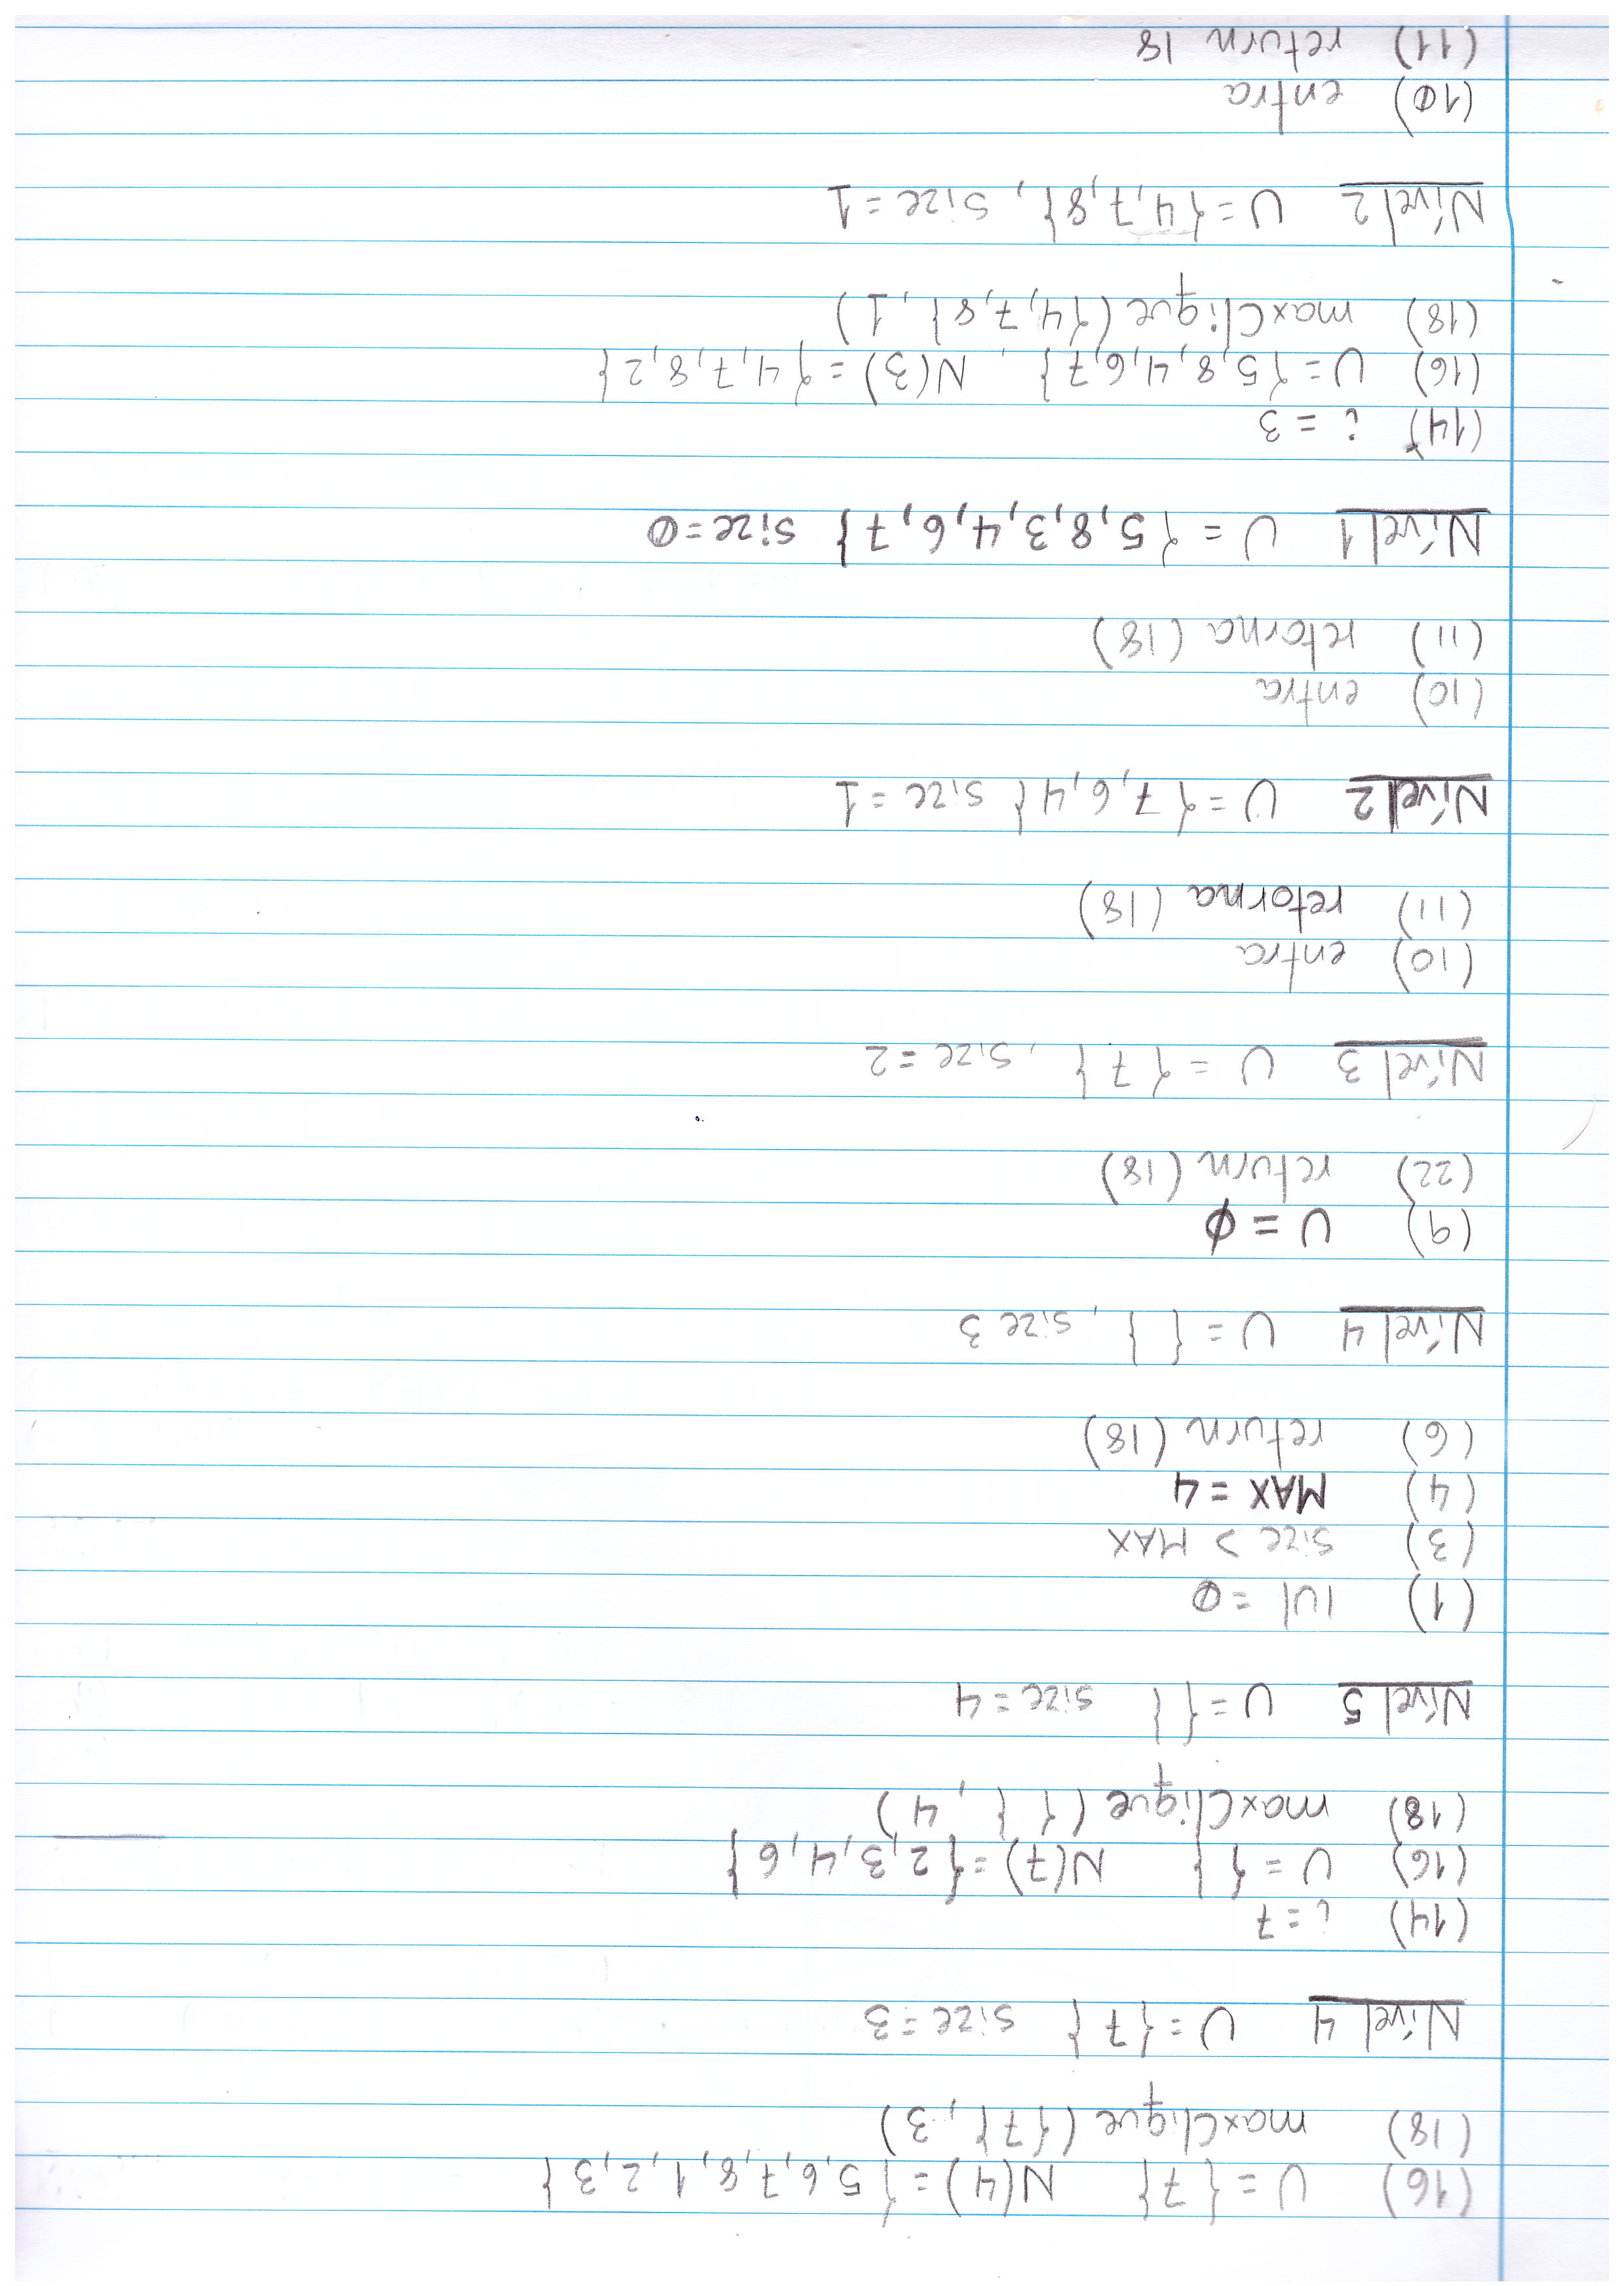 (16) U = {7} N(4) = {5,6,7,8,1,2,3}
(18) maxClique ({7}, 3)
Nível 4 U = {7} size = 3
(14) i = 7
(16) U = { } N(7) = {2,3,4,6}
(18) maxClique ({ }, 4)
Nível 5 U = { } size = 4
(1) |U| = ∅
(3) size > MAX
(4) MAX = 4
(6) return (18)
Nível 4 U = { }, size 3
(9) U = ∅
(22) return (18)
Nível 3 U = {7}, size = 2
(10) entra
(11) retorna (18)
Nível 2 U = {7,6,4} size = 1
(10) entra
(11) retorna (18)
Nível 1 U = {5,8,3,4,6,7} size = ∅
(14) i = 3
(16) U = {5,8,4,6,7}, N(3) = {4,7,8,2}
(18) maxClique ({4,7,8}, 1)
Nível 2 U = {4,7,8}, size = 1
(10) entra
(11) return 18